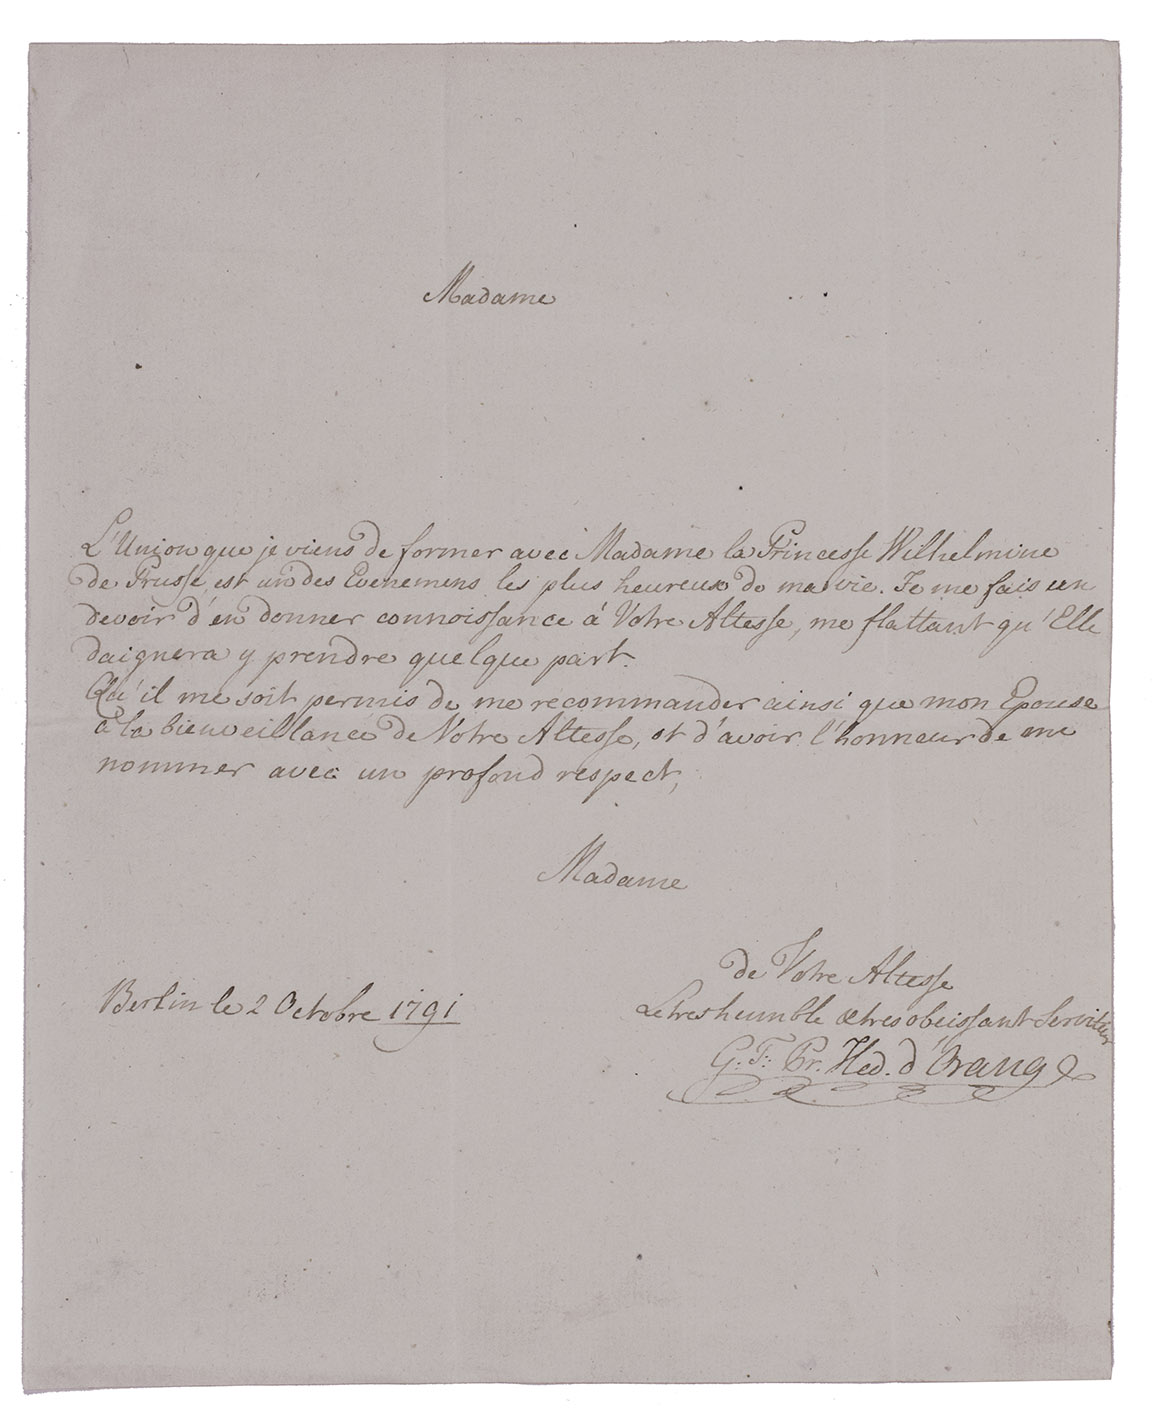 Madame
L'Union que je viens de former avec Madame la Princesse Wilhelmine
de Prusse, est un des Evenemens les plus heureux de ma vie. Je me fais un
devoir d'en donner connoissance à Votre Altesse, me flattant qu'Elle
daignera y prendre quelque part.
Qu'il me soit permis de me recommander ainsi que mon Epouse
à la bienveillance de Votre Altesse, et d'avoir l'honneur de me
nommer avec un profond respect,
Madame
de Votre Altesse
Berlin le 2 Octobre 1791
Le tres humble & tres obeissant Serviteur
G: F: Pr. Hed. d'Orange